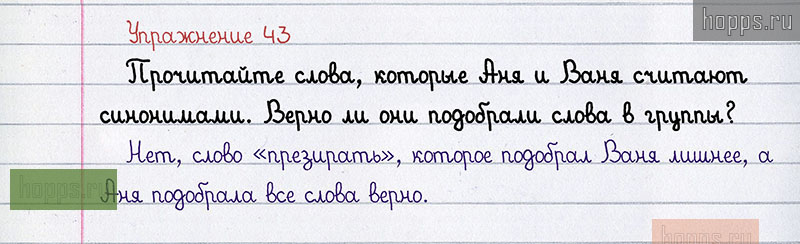 hopps.ru
Упражнение 43
Прочитайте слова, которые Аня и Ваня считают
синонимами. Верно ли они подобрали слова в группы?
Нет, слово «презирать», которое подобрал Ваня лишнее, а
hopps.ru
Аня подобрала все слова верно.
hopps.ru